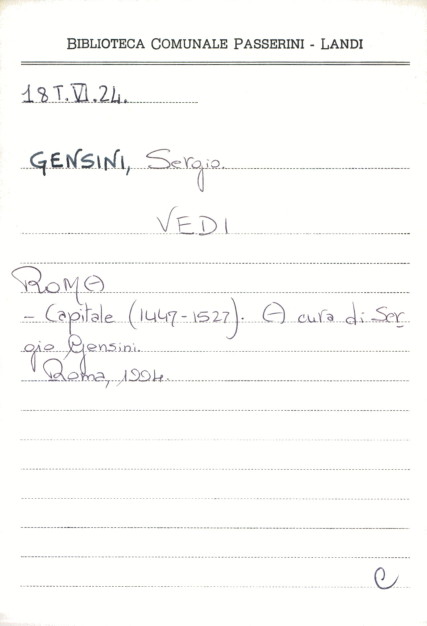 BIBLIOTECA COMUNALE PASSERINI - LANDI
18T.VI.24.
GENSINI, Sergio.
VEDI
ROMA
- Capitale (1447-1527). A cura di Ser-
gio Gensini.
Roma, 1994.
C